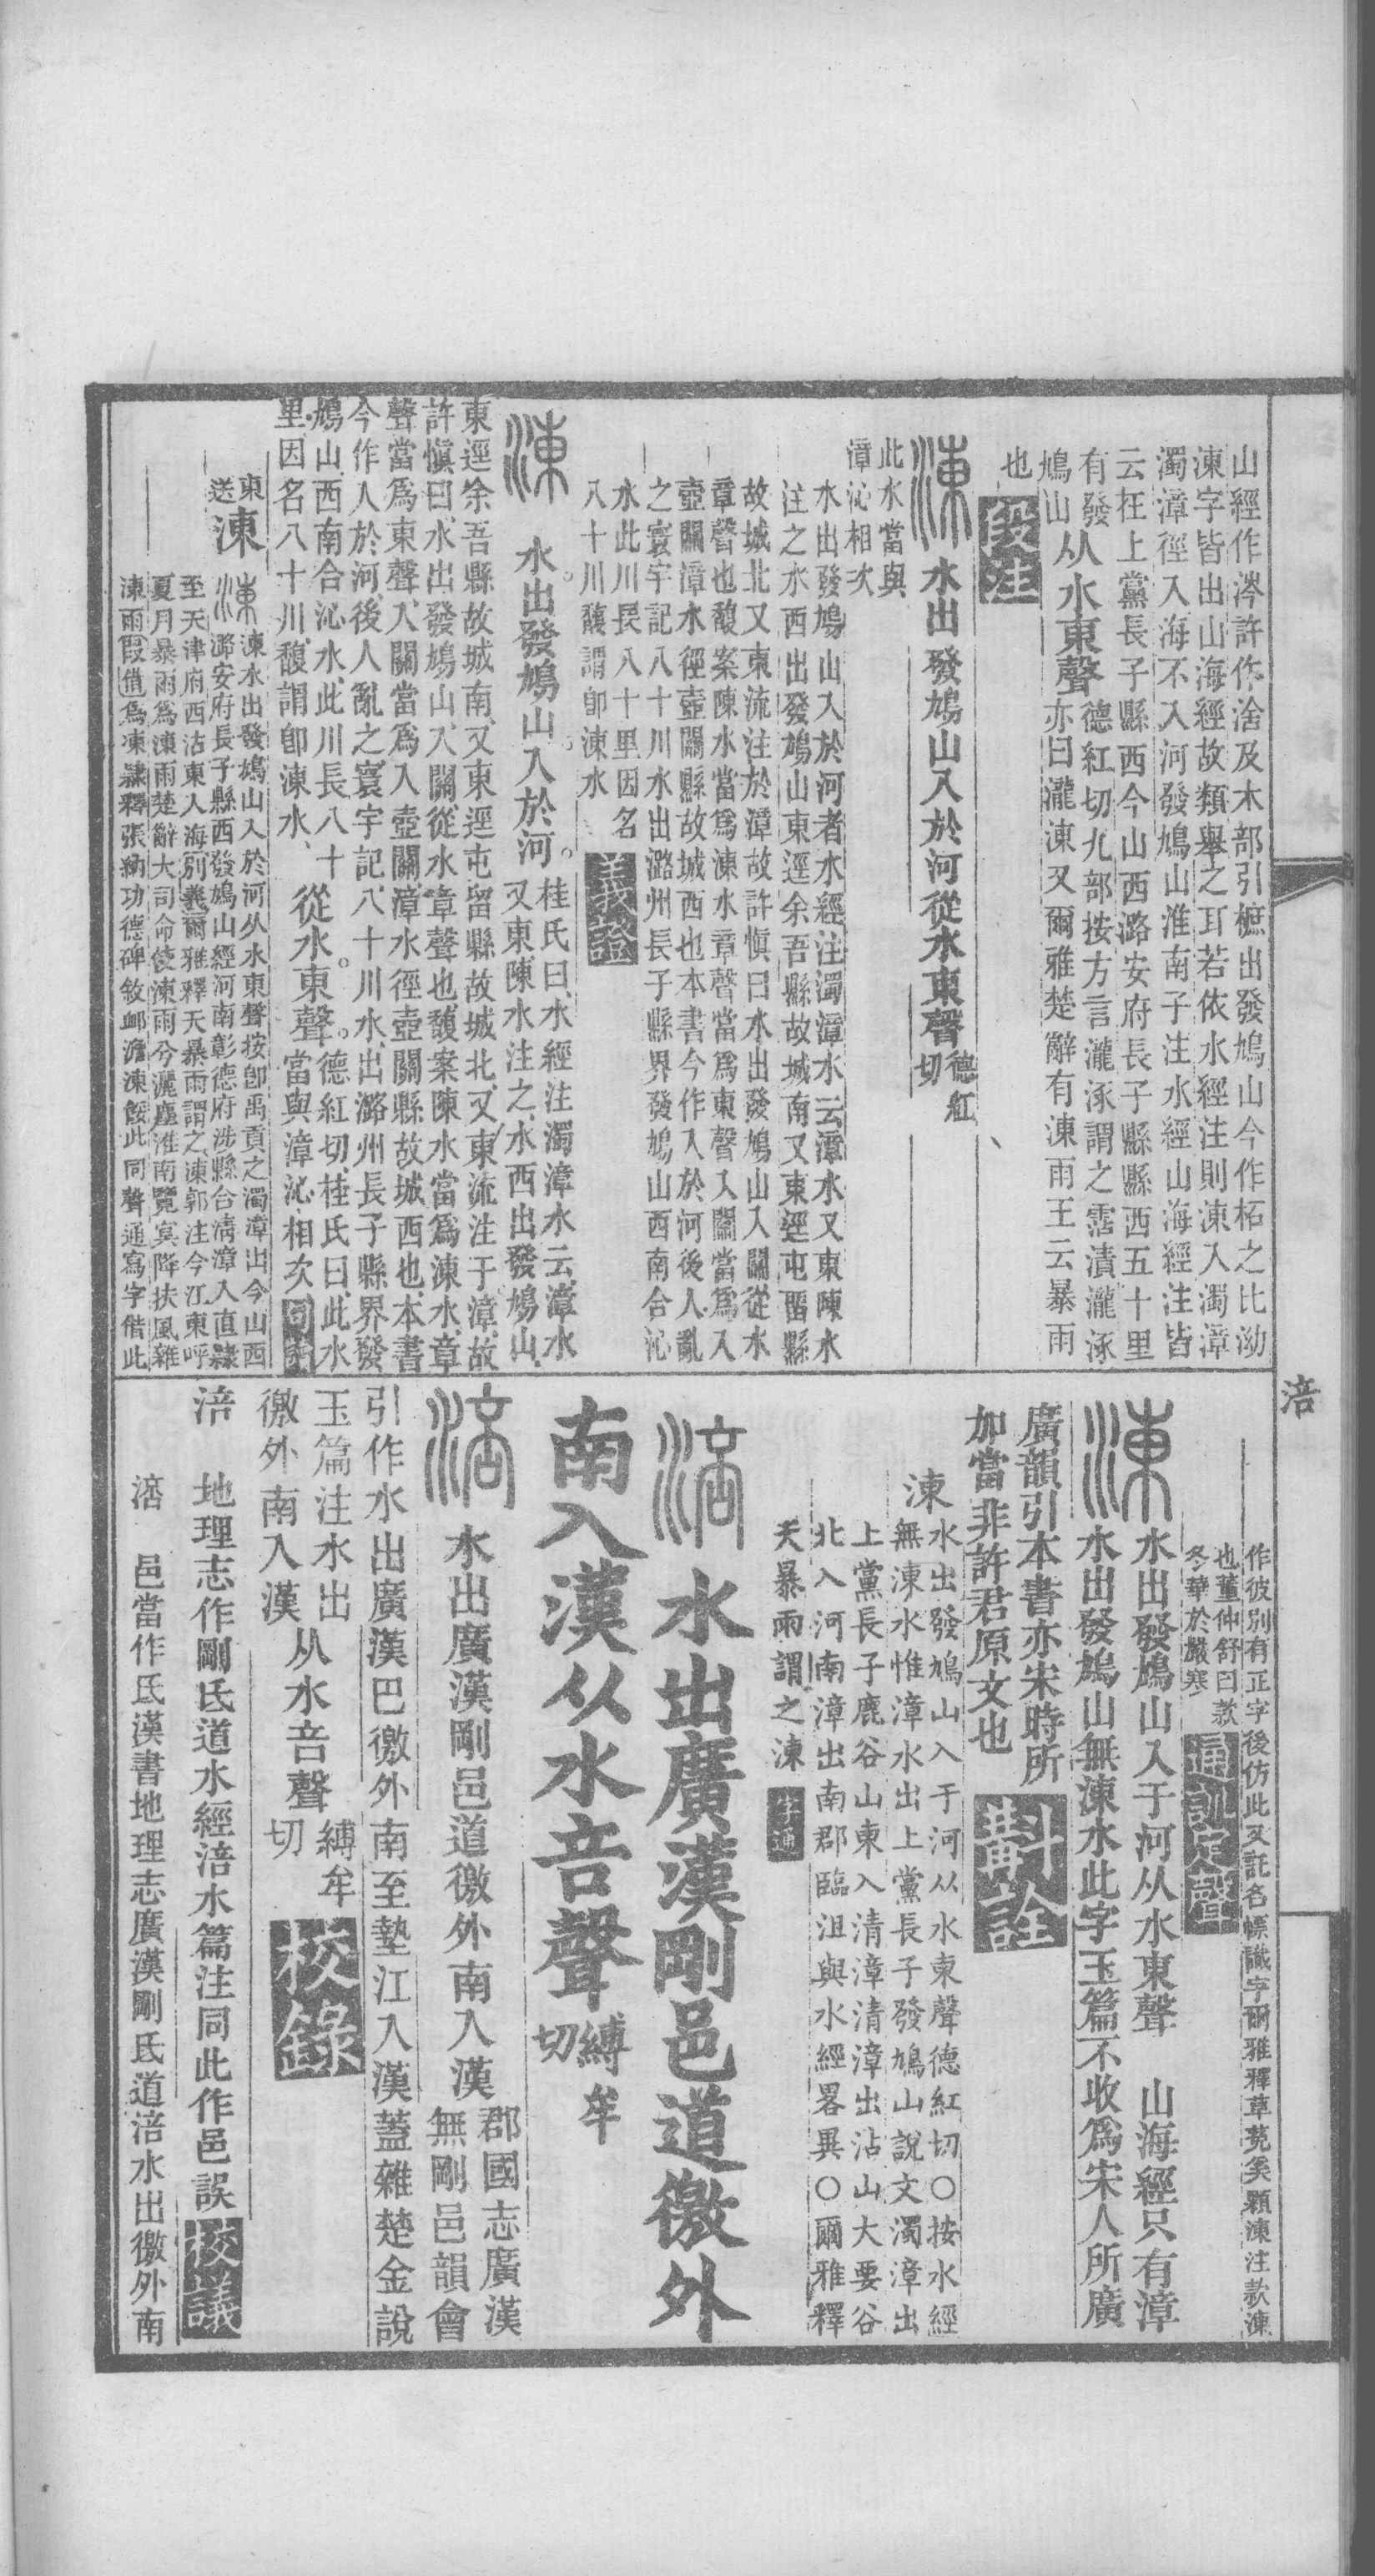 山經作涔許作洽及木部引樜出發鳩山今作柘之比泑
涷字皆出山海經故類舉之耳若依水經注則涷入濁漳
濁漳徑入海不入河發鳩山淮南子注水經山海經注皆
云在上黨長子縣西今山西潞安府長子縣縣西五十里
有發鳩山从水東聲德紅切九部按方言瀧涿謂之霑漬瀧涿
亦曰瀧涷又爾雅楚辭有涷雨王云暴雨
也 段注
涷 水出發鳩山入於河從水東聲 德紅切
此水當與
漳沁相次
水出發鳩山入於河者水經注濁漳水云漳水又東陳水
注之水西出發鳩山東逕余吾縣故城南又東逕屯留縣
故城北又東流注於漳故許愼曰水出發鳩山入關從水
章聲也馥案陳水當爲涷水章聲當爲東聲入關當爲入
壺關漳水徑壺關縣故城西也本書今作入於河後人亂
之寰宇記八十川水出潞州長子縣界發鳩山西南合沁
水此川長八十里因名
八十川馥謂卽涷水 義證
涷 水出發鳩山入於河。桂氏曰、水經注濁漳水云、漳水
又東、陳水注之、水西出發鳩山、
東逕余吾縣故城南、又東逕屯留縣故城北、又東流注于漳、故
許愼曰、水出發鳩山、入關、從水章聲也、馥案陳水、當爲涷水、章
聲當爲東聲、入關當爲入壺關、漳水徑壺關縣故城西也、本書
今作入於河、後人亂之、寰宇記、八十川水、出潞州長子縣界發
鳩山、西南合沁水、此川長八十
里、因名八十川、馥謂卽涷水、 從水。東聲。德紅切、桂氏曰、此水
當與漳沁相次 句讀
涷 東送
涷水出發鳩山入於河从水東聲按卽禹貢之濁漳出今山西
潞安府長子縣西發鳩山經河南彰德府涉縣合清漳入直隷
至天津府西沽東入海別義爾雅釋天暴雨謂之涷郭注今江東呼
夏月暴雨爲涷雨楚辭大司命使涷雨兮灑塵淮南覽冥降扶風雜
涷雨叚借爲凍隷釋張納功德碑敘卹澹凍餒此同聲通寫字借此
作彼別有正字後仿此又託名幖識字爾雅釋草菟奚顆涷注款涷
也董仲舒曰款
冬華於嚴寒 通訓定聲
涷 水出發鳩山入于河从水東聲 山海經只有漳
水出發鳩山無涷水此字玉篇不收爲宋人所廣
廣韻引本書亦宋時所
加當非許君原文也 斠詮
涷 水出發鳩山入于河从水東聲德紅切○按水經
無涷水惟漳水出上黨長子發鳩山說文濁漳出
上黨長子鹿谷山東入清漳清漳出沾山大要谷
北入河南漳出南郡臨沮與水經畧異○爾雅釋
天暴雨謂之涷
涪 水出廣漢剛邑道徼外
南入漢从水咅聲 縛牟切
涪 水出廣漢剛邑道徼外南入漢 郡國志廣漢
無剛邑韻會
引作水出廣漢巴徼外南至墊江入漢蓋雜楚金說
玉篇注水出
徼外南入漢 从水咅聲 縛牟切 校錄
涪 地理志作剛氐道水經涪水篇注同此作邑誤 校議
涪 邑當作氐漢書地理志廣漢剛氐道涪水出徼外南
涪